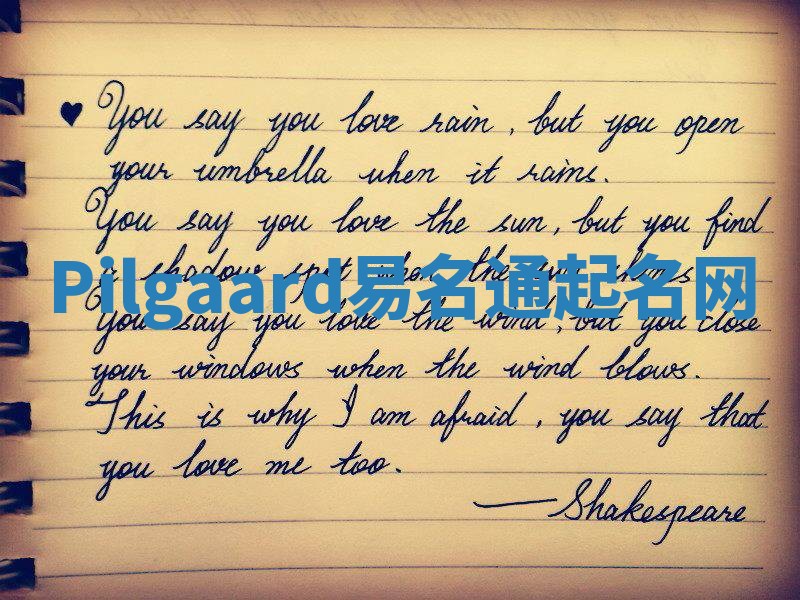 ♥ You say you love rain, but you open
your umbrella when it rains.
You say you love the sun, but you find
a shadow spot when the sun shines
Pilgaard易名通起名网
You say you love the wind, but you close
your windows when the wind blows.
This is why I am afraid, you say that
you love me too.
—Shakespeare